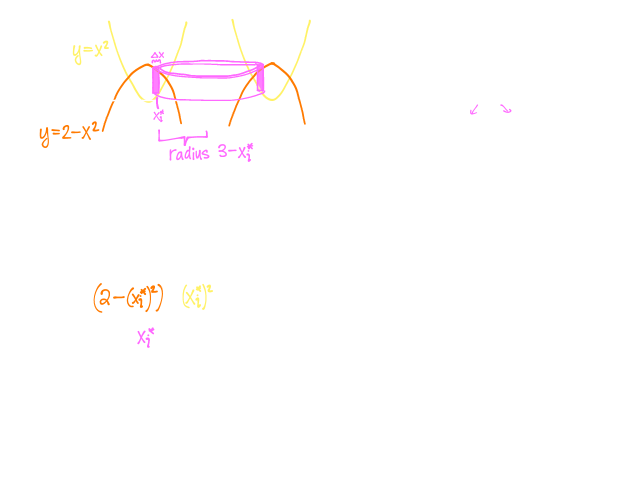 Δx
y=x²
xᵢ*
y=2-x²
radius 3-xᵢ*
(2-(xᵢ*)²) (xᵢ*)²
xᵢ*